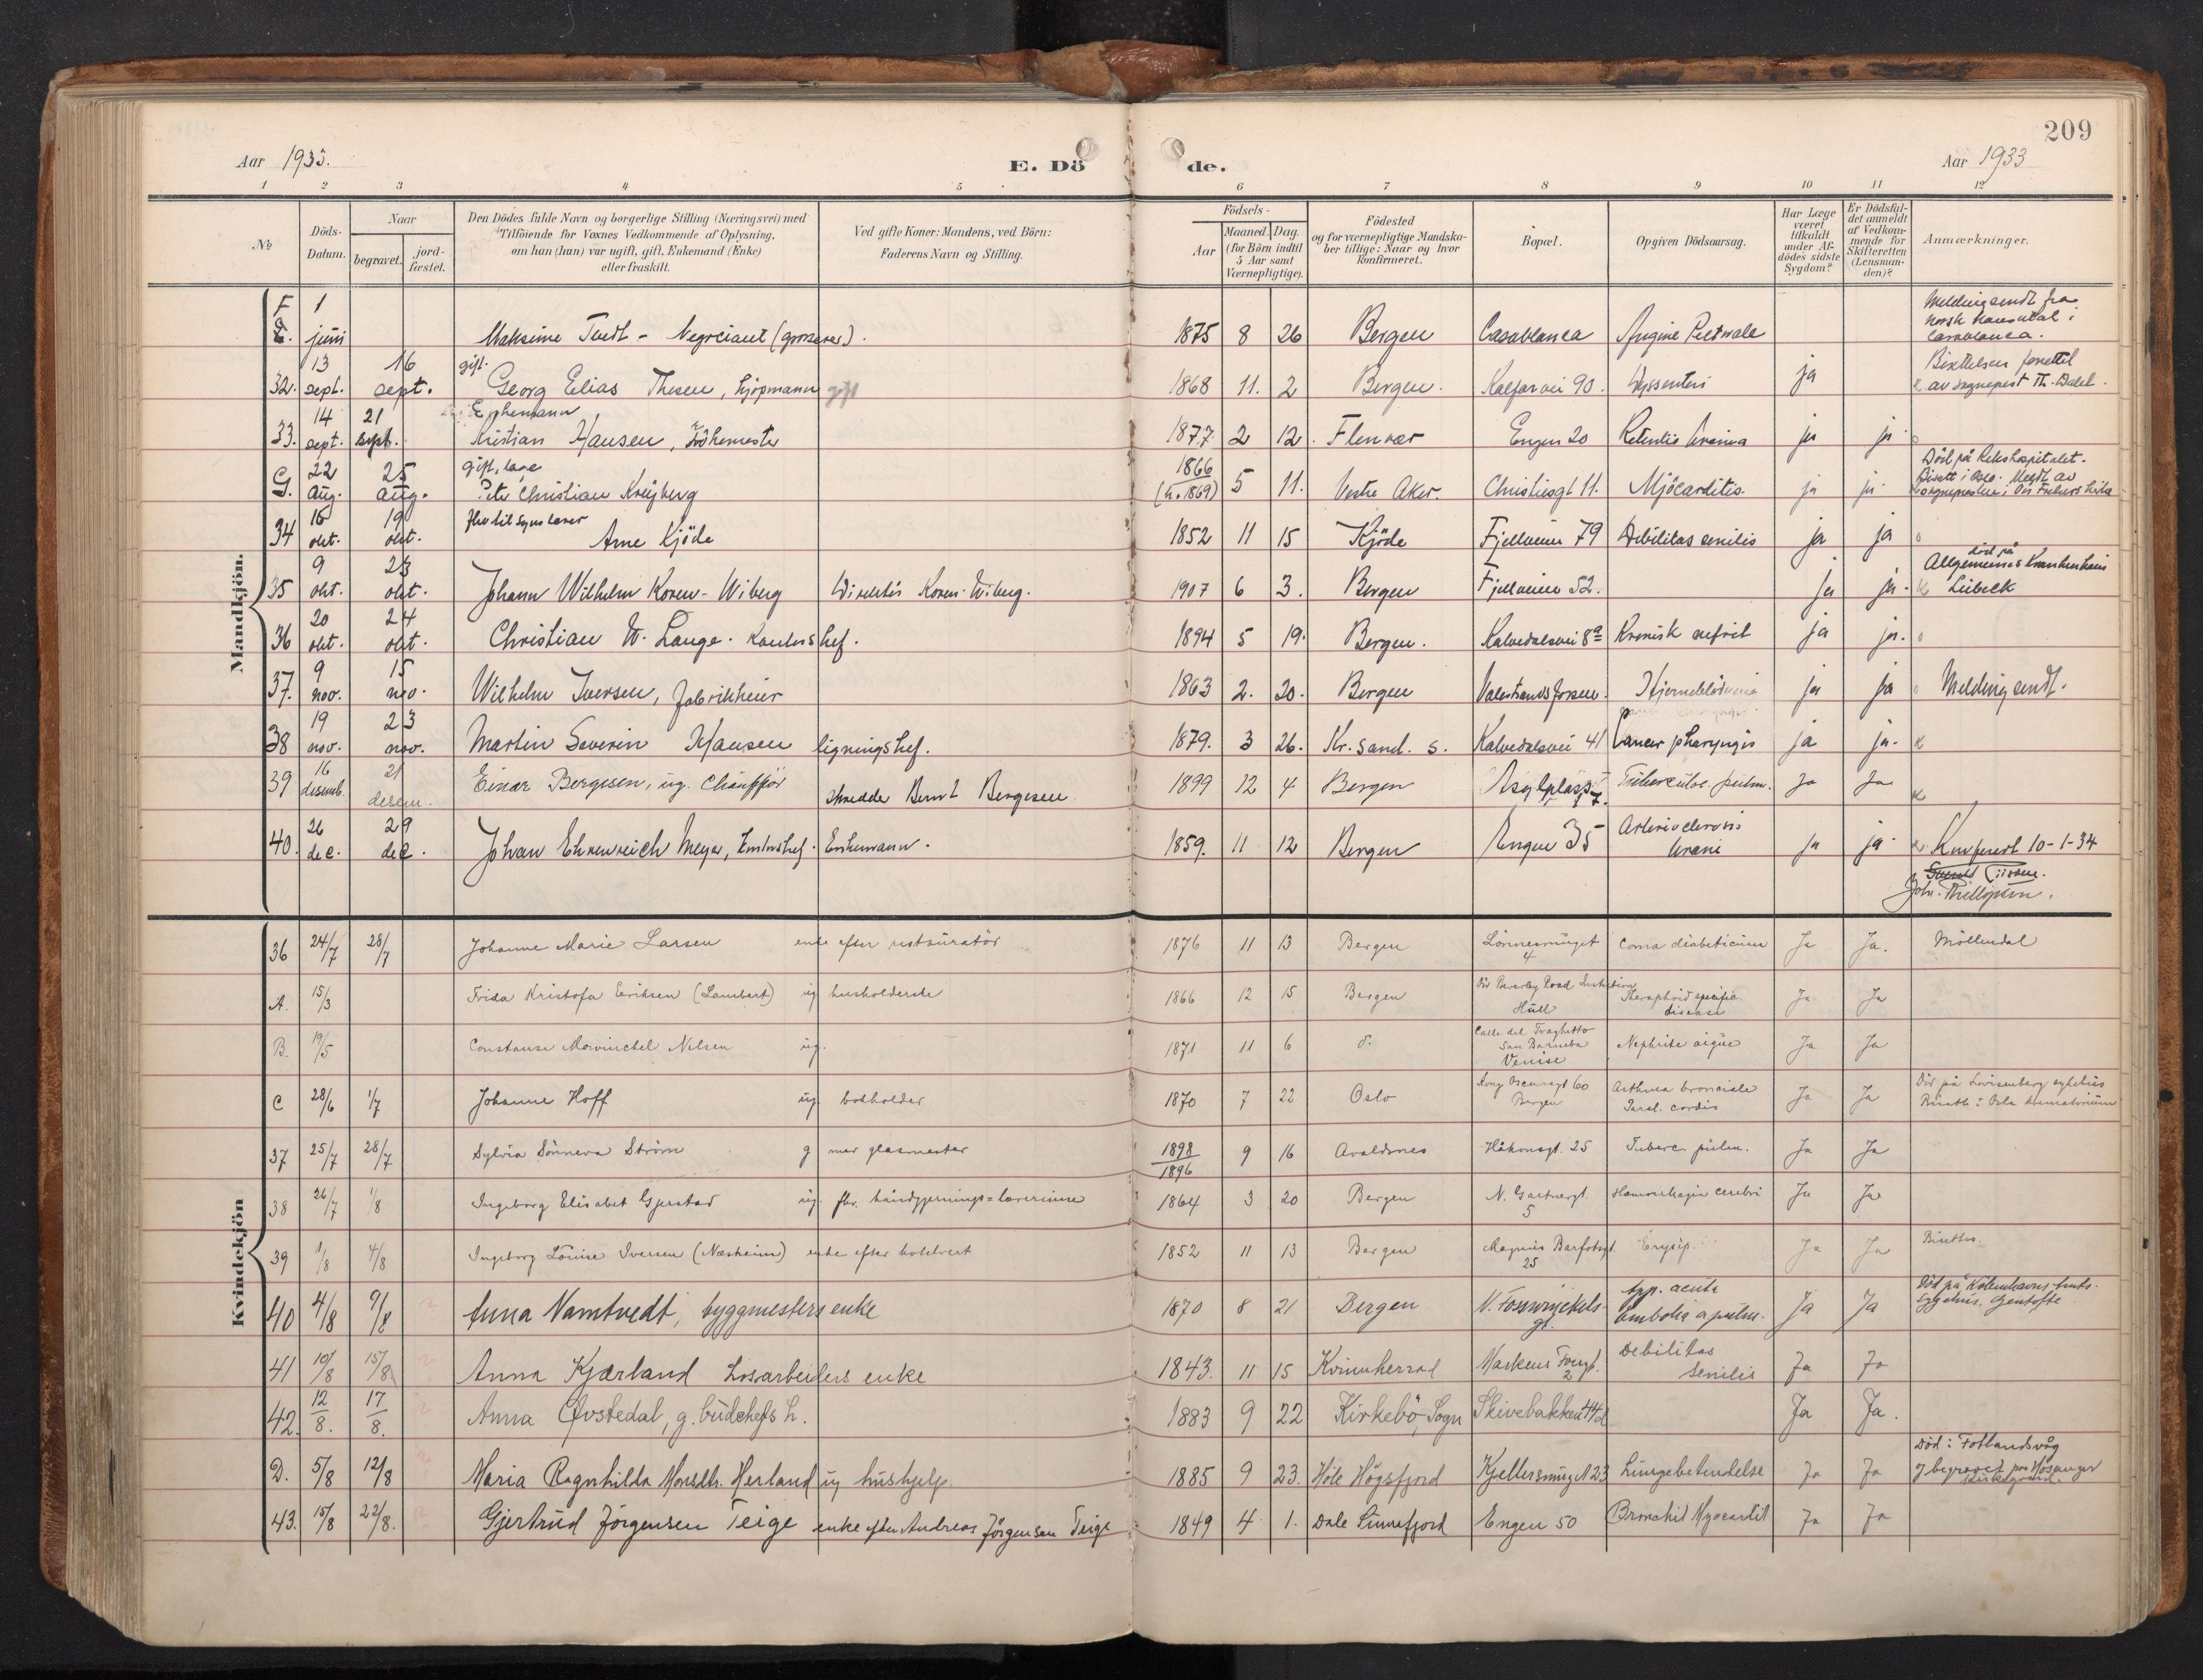 209
Aar 1933.
E. Döde.
Aar 1933
1 2 3 4 5 6 7 8 9 10 11 12
No
Döds-Datum.
Naar begravet. jordfæstet.
Den Dödes fulde Navn og borgerlige Stilling (Næringsvei) med
Tilföiende for Voxnes Vedkommende af Oplysning,
om han (hun) var ugift, gift, Enkemand (Enke)
eller fraskilt.
Ved gifte Koner: Mandens, ved Börn:
Faderens Navn og Stilling.
Födsels-
Aar
Maaned. Dag.
(for Börn indtil
5 Aar samt
Værnepligtige).
Födested
og for værnepligtige Mandska-
ber tillige: Naar og hvor
Konfirmeret.
Bopæl.
Opgiven Dödsaarsag.
Har Læge
været
tilkaldt
under Af-
dödes sidste
Sygdom?
Er Dödsfal-
det anmeldt
af Vedkom-
mende for
Skifteretten
(Lensman-
den)?
Anmærkninger.
Mandkjön.
F 1 juni Maksime - Negociant (grosserer). 1875 8 26 Bergen Casablanca Angine Melding sendt fra norsk konsulat i Casablanca.
32. 13 sept. 16 sept. gift. Georg Elias Thesen, kjøpmann gift 1868 11. 2 Bergen. Kalfarvei 90. Dyssenteri ja av sogneprest Th.
33. 14 sept. 21 sept. Kristian Hansen, 1877 2 12. Flenvær Engen 20 Retentio ja ja
G. 22 Aug. 25 aug. gift, Peter Christian Kreyberg 1866 (h. 1869) 5 11. Vestre Aker. Christiesgt 11. Mjöcarditis. ja ja Död på Rikshospitalet. Bisatt i Oslo.
34 16 okt. 19 okt. Arne Kjöde 1852 11 15 Kjöde Fjellveien 79 Debilitas senilis ja ja
35 9 okt. 23 okt. Johann Wilhelm Koren-Wiberg Direktör Koren-Wiberg. 1907 6 3. Bergen Fjellveien 52. ja ja. död på Allgemeines Krankenhaus Lübeck
36 20 okt. 24 okt. Christian Lange. Kontorshef. 1894 5 19. Bergen. Kalvedalsvei 8a Kronisk nefrit ja ja.
37. 9 nov. 15 nov. Wilhelm Iversen, fabrikkeier 1863 2. 20. Bergen Valestrandsfossen. Hjerneblödning ja ja Melding sendt.
38 19 nov. 23 nov. Martin Severin Hansen ligningshef. 1879. 3 26. Kr. sand. S. Kalvedalsvei 41 Cancer pharyngis ja ja.
39 16 desemb. 21 desem. Einar Bergesen, ug. Chauffør Skredder Bernt Bergesen 1899 12 4 Bergen Asylplass 7. Tuberculos. pulm. Ja Ja
40. 26 dec. 29 dec. Johan Ehrenreich Meyer, kontorshef. Enkemann. 1859. 11 12 Bergen Engen 35 Arteriosclerosis ja ja Konferert 10-1-34
Kvindekjön
36 24/7 28/7 Johanne Marie Larsen enke efter restauratör 1876 11 13 Bergen 4 Coma diabeticum Ja Ja. Möllendal
A. 15/3 Frida Kristofa Eriksen (Lambert) ug husholderske 1866 12 15 Bergen Beverley Road Institution Hull specific disease Ja Ja
B. 19/5 Constanse Mowinckel Nilsen ug. 1871 11 6 d. Calle del Traghetto San Barnaba Venise Nephrite aigüe Ja Ja
C 28/6 1/7 Johanne Hoff ug. bokholder 1870 7 22 Oslo Kong Oscarsgt 60 Bergen Asthma bronciale Paral. cordis Ja Ja Död på Lovisenberg sykehus Bisatt i Oslo krematorium
37 25/7 28/7 Sylvia Sönneva Ström g med glasmester 1898 1896 9 16 Avaldsnes Håkonsgt. 25 Tuberc. pulm. Ja Ja
38 26/7 1/8 Ingeborg Elisabet Gjerstad ug. fhv. håndgjernings=lærerinne 1864 3 20 Bergen N. Gartnergt. 5 Hæmorrhagia cerebri Ja Ja
39 1/8 4/8 Ingeborg Lovise Iversen (Næsheim) enke efter hotelvert 1852 11 13 Bergen Magnus Barfotsgt. 25 Erysip. Ja Ja Bisettes.
40 4/8 9/8 Anna Namtvedt, byggmesters enke 1870 8 21 Bergen V. Fosswinckels gt. App. acuta Embolia a. pulm. Ja Ja Död på Köbenhavns Amts. Sygehus. Gentofte
41 10/8 15/8 Anna Kjærland Losarbeiders enke 1843. 11 15 Kvinnherrad Markeus 2 Debilitas Senilis Ja Ja
42. 12/8. 17/8. Anna Øvstedal, g. h. 1883 9 22 Kirkebö, Sogn Skivebakken 44d Ja Ja.
D. 5/8 12/8 Maria Ragnhilda Monsdtr. Herland ug hushjelp. 1885 9 23. Höle Högsfjord Kjellersmug 23 Lungebetendelse Ja Ja Död i Fotlandsvåg og begravet på Hosanger kirkegård.
43. 15/8 22/8. Gjertrud Jörgensen Teige enke efter Andreas Jörgensen Teige 1849 4 1. Dale Sunnfjord Engen 50 Bronchit Myocardit Ja Ja